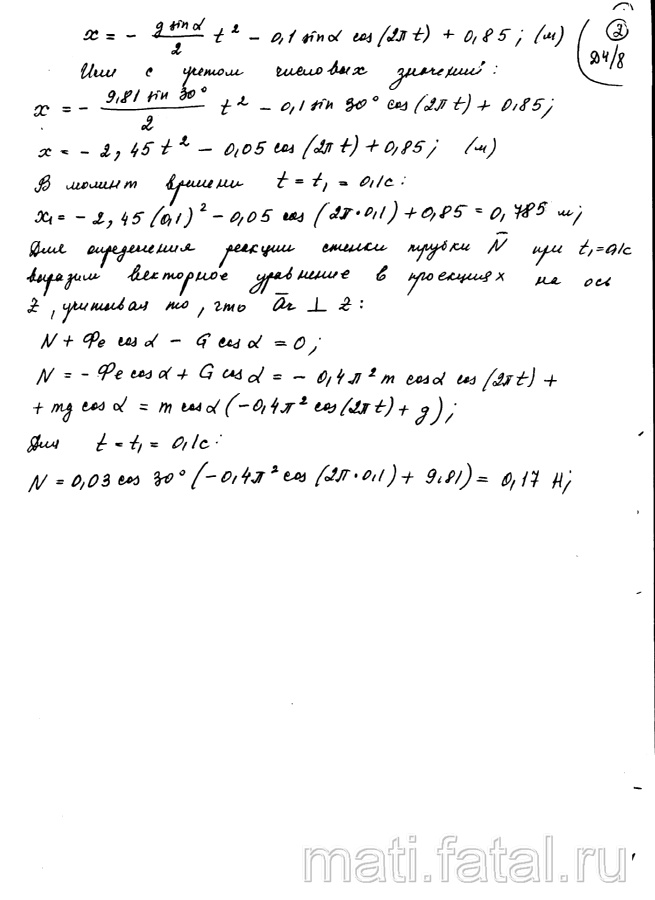 x = - g sinα / 2 t² - 0,1 sinα cos(2πt) + 0,85; (м)
2
Д4/8
Или с учетом числовых значений:
x = - 9,81 sin 30° / 2 t² - 0,1 sin 30° cos(2πt) + 0,85;
x = - 2,45 t² - 0,05 cos(2πt) + 0,85; (м)
В момент времени t = t₁ = 0,1с:
x₁ = - 2,45 (0,1)² - 0,05 cos (2π·0,1) + 0,85 = 0,785 м;
Для определения реакции стенки трубки N̄ при t₁=0,1с
выразим векторное уравнение в проекциях на ось
Z, учитывая то, что ār ⊥ Z:
N + Фe cosα - G cosα = 0;
N = - Фe cosα + G cosα = - 0,4π² m cosα cos(2πt) +
+ mg cosα = m cosα (-0,4π² cos(2πt) + g);
Для t = t₁ = 0,1с:
N = 0,03 cos 30° (-0,4π² cos(2π·0,1) + 9,81) = 0,17 Н;
mati.fatal.ru